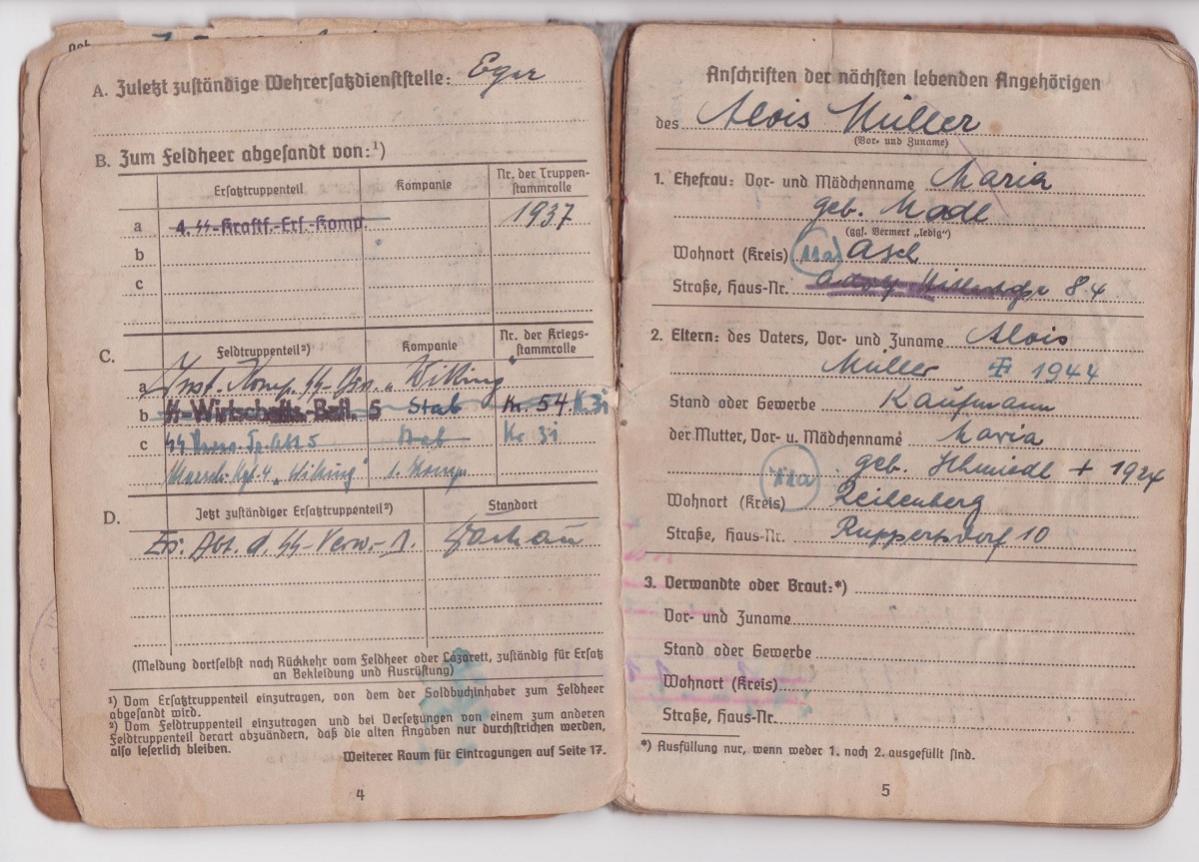 A. Zuletzt zuständige Wehrersatzdienststelle: Eger
B. Zum Feldheer abgesandt von:¹)
Ersatztruppenteil Kompanie Nr. der Truppen-
stammrolle
a 4. SS-Kraftf.-Ers.-Komp. 1937
b
c
C. Feldtruppenteil²) Kompanie Nr. der Kriegs-
stammrolle
a Inst. Komp. SS-Div. „Wiking"
b SS-Wirtschafts-Batl. 5 Stab Kr. 54. K.3i
c 5 Stab Kr 3i
„Wiking" 1. Komp.
D. Jetzt zuständiger Ersatztruppenteil²) Standort
Ers. Abt. d. SS-Verw.-D. Dachau
(Meldung dortselbst nach Rückkehr vom Feldheer oder Lazarett, zuständig für Ersatz
an Bekleidung und Ausrüstung)
¹) Vom Ersatztruppenteil einzutragen, von dem der Soldbuchinhaber zum Feldheer
abgesandt wird.
²) Vom Feldtruppenteil einzutragen und bei Versetzungen von einem zum anderen
Feldtruppenteil derart abzuändern, daß die alten Angaben nur durchstrichen werden,
also leserlich bleiben.
Weiterer Raum für Eintragungen auf Seite 17.
4
Anschriften der nächsten lebenden Angehörigen
des Alois Müller
(Vor- und Zuname)
1. Ehefrau: Vor- und Mädchenname Maria
geb. Modl
(ggf. Vermerk „ledig")
Wohnort (Kreis) Asch
Straße, Haus-Nr. Adolf Hitlerstr 84
2. Eltern: des Vaters, Vor- und Zuname Alois
Müller 1944
Stand oder Gewerbe Kaufmann
der Mutter, Vor- u. Mädchenname Maria
geb. Schmiedl + 1924
Wohnort (Kreis) Reichenberg
Straße, Haus-Nr. Ruppersdorf 10
3. Verwandte oder Braut:*)
Vor- und Zuname
Stand oder Gewerbe
Wohnort (Kreis)
Straße, Haus-Nr.
*) Ausfüllung nur, wenn weder 1. noch 2. ausgefüllt sind.
5